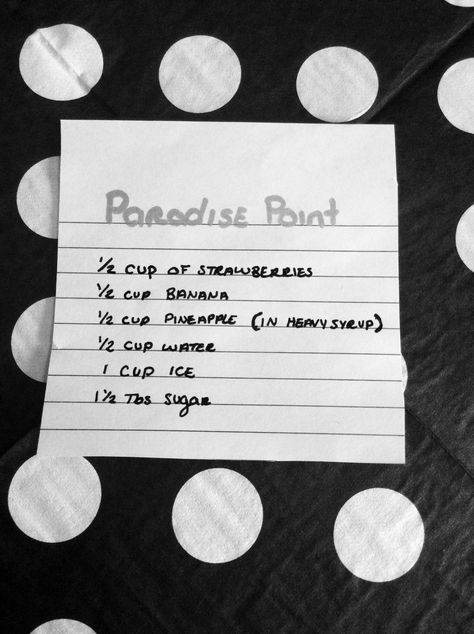 Paradise Point
1/2 CUP OF STRAWBERRIES
1/2 CUP BANANA
1/2 CUP PINEAPPLE (IN HEAVY SYRUP)
1/2 CUP WATER
1 CUP ICE
1 1/2 Tbs Sugar